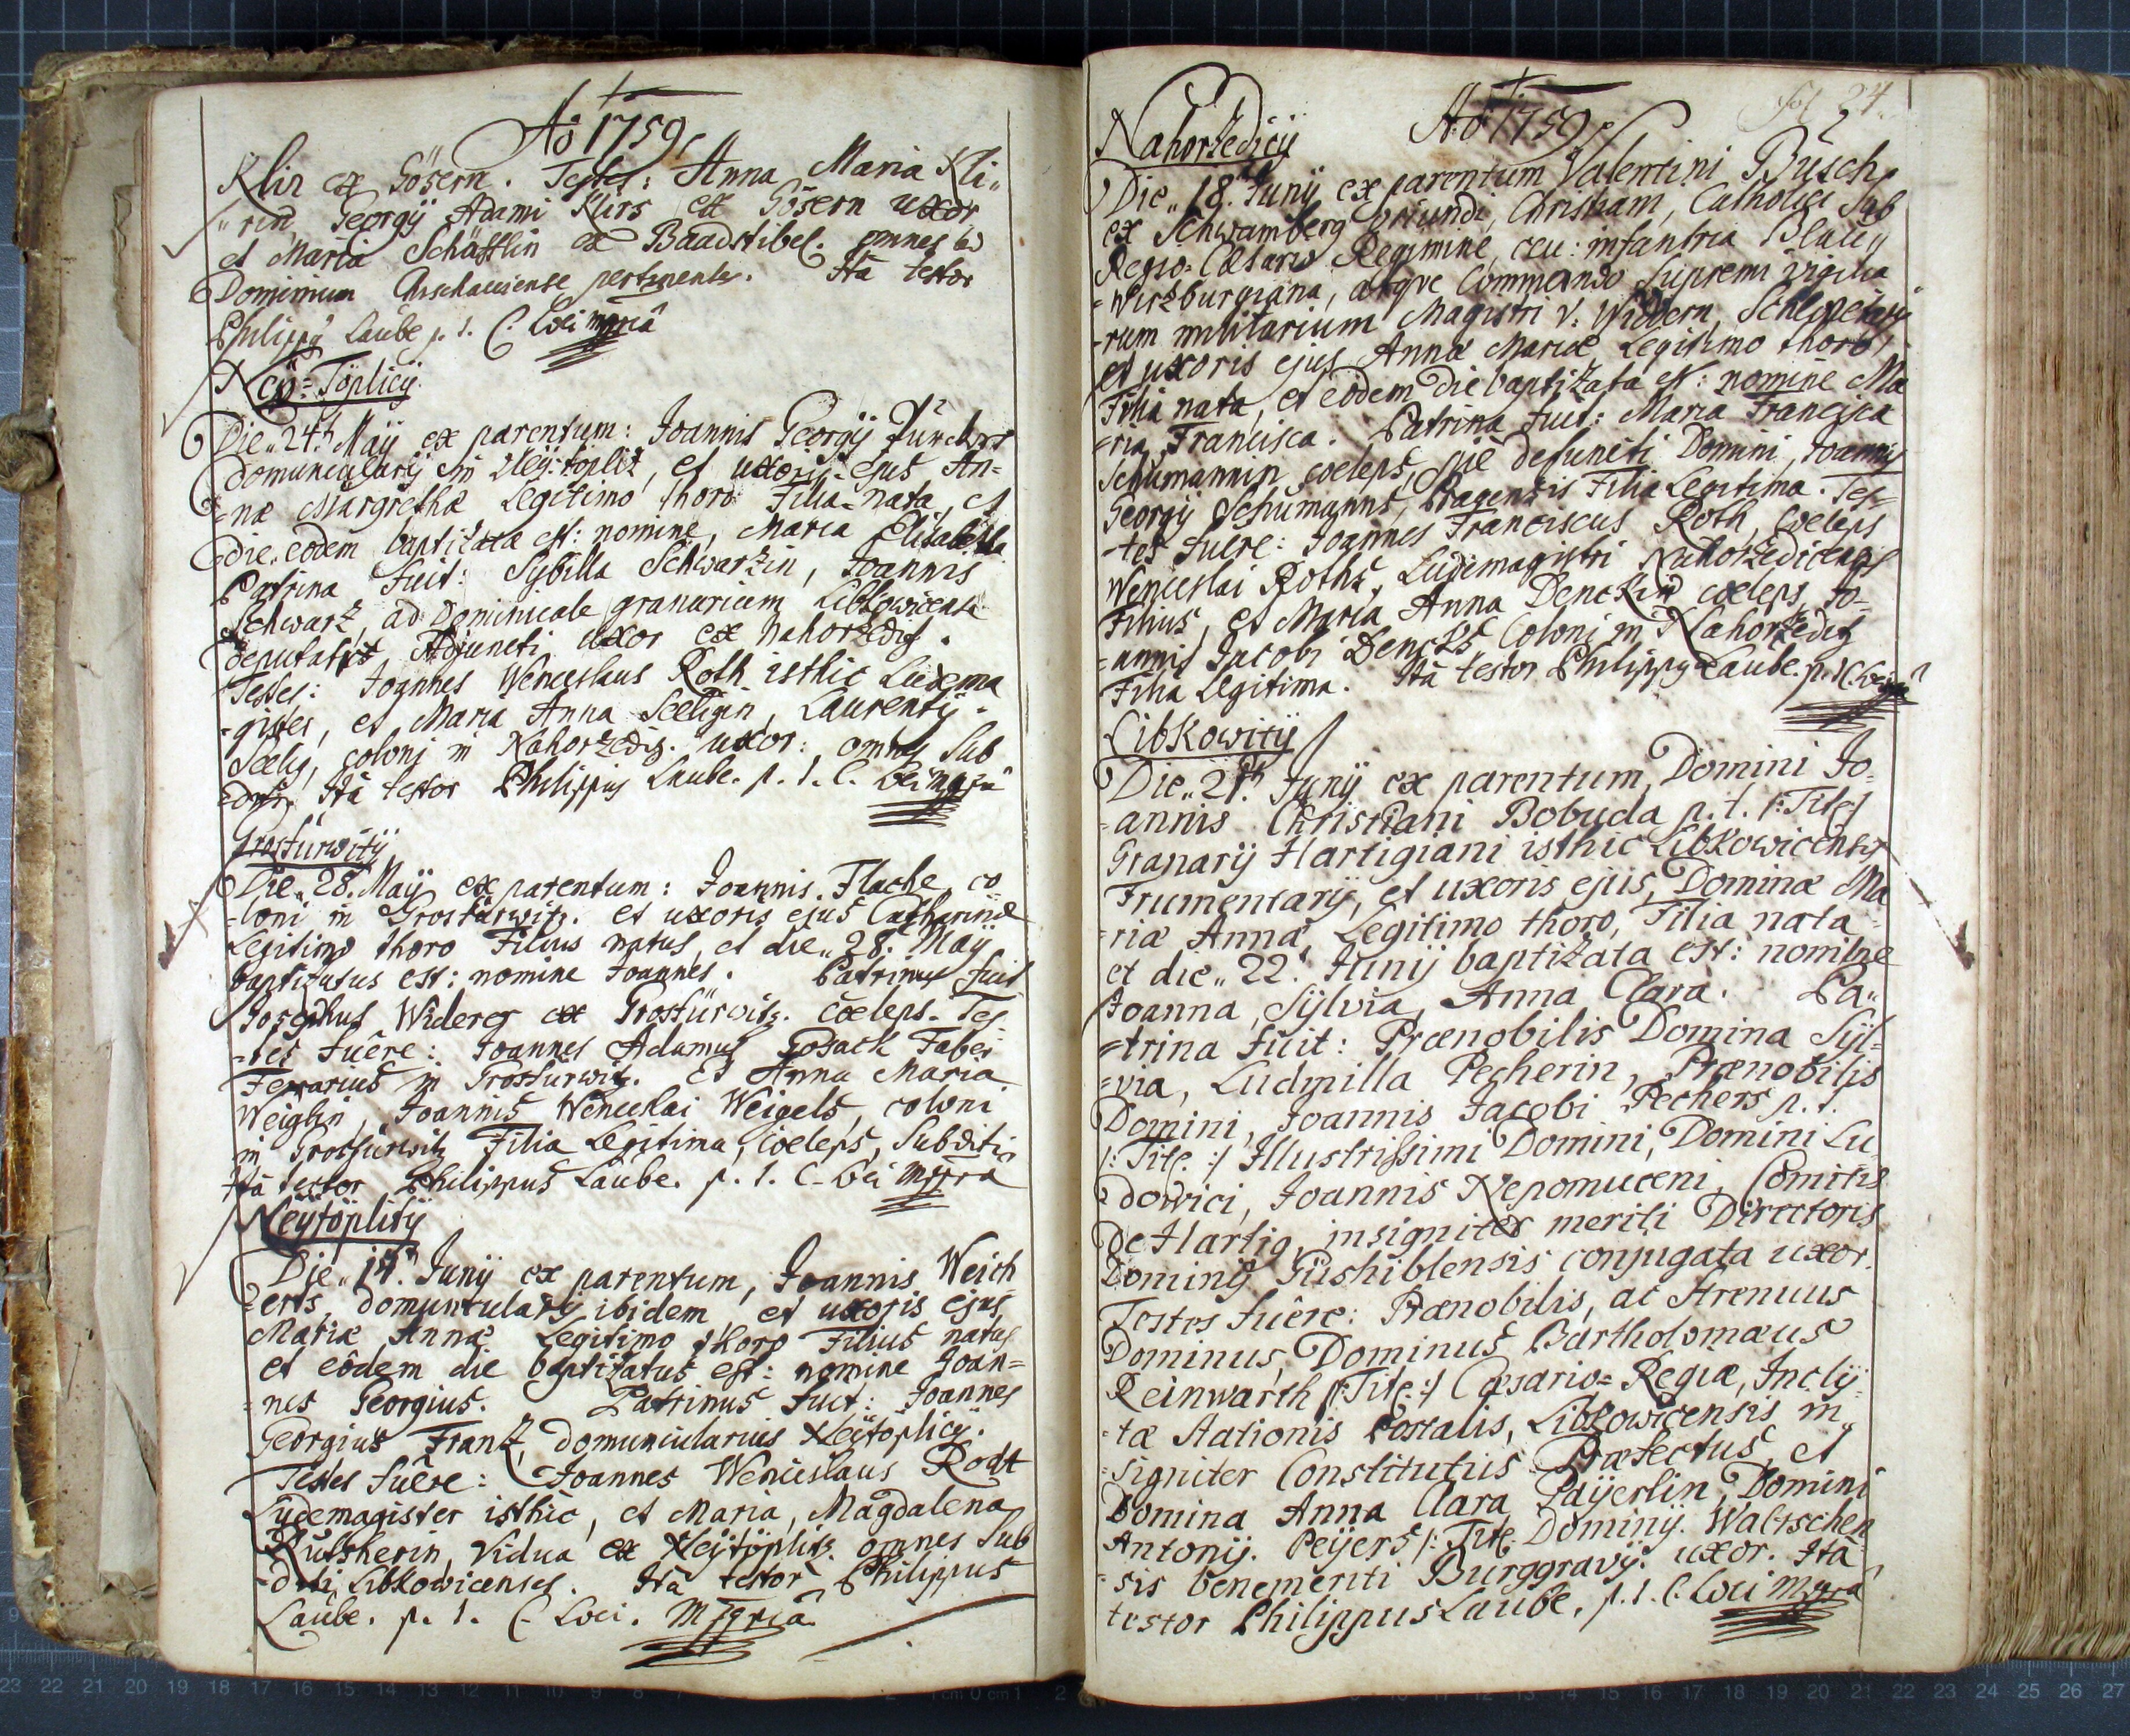 Aõ 1759
Klin ex Gösern. Testes: Anna Maria Kli„
„rin, Georgÿ Adami Klirs ex Gösern uxor
et Maria Schäfflin ex Baadstibel. omnes ad
Dominium pertinentes. Ità testor
Philippg Laube p. t. C. Loci mpriâ
Neÿ=Töplicÿ
Die„ 24th Maÿ ex parentum: Joannis Georgÿ
domuncularÿ in Neÿ:toplitz, et uxoris ejus An=
=næ Margrethæ Legitimo thoro Filia nata, et
die eôdem baptizata est: nomine, Maria Elisabetha
Patrina fuit: Sÿbilla Schwarzin, Joannis
Schwarz, ad Dominicale granarium Libkowicense
deputati Adjuncti uxor ex Nahorzedig.
Testes: Joannes Wenceslaus Roth isthic Ludema
=gister, et Maria Anna Seeligin, Laurentÿ
Seelig, coloni in Nahorzedig. uxor: omnes Sub
=diti. Ità testor Philippus Laube. p. t. C. Loci mpriâ
Grosfürwitÿ
Die„ 28. Maÿ ex parentum: Joannis Flache, co
=loni in Grosfürwitz. et uxoris ejus Catharinæ
Legitimo thoro Filius natus, et die„ 28. Maÿ
baptizatus est: nomine Joannes. Patrinus fuit
Josephus Widerer ex Grosfürwitz. coeleps. Tes
=tes fuêre: Joannes Adamus Faber
Ferrarius in Grosfurwitz. Et Anna Maria
Weiglin, Joannis Wenceslai Weigels, coloni
in Grosfürwitz Filia Legitima, coeleps, Subditi
Ità testor Philippus Laube. p. t. C. Loci mpriâ
Neÿtöplitÿ
Die„ 14th Junÿ ex parentum, Joannis Weich
=erts, domuncularÿ ibidem et uxoris ejus
Mariæ Annæ Legitimo thoro Filius natus
et eôdem die baptizatus est: nomine Joan=
=nes Georgius. Patrinus fuit: Joannes
Georgius Frantz, domuncularius Neÿtoplicÿ.
Testes fuêre: Joannes Wenceslaus Rodt
Ludemagister isthic, et Maria, Magdalena
Kutsherin, Vidua ex Neÿtöplitz. omnes Sub
=diti Libkowicenses. Ità testor Philippus
Laube. p. t. C. Loci. mpriâ
Nahorzedicÿ Aõ 1759 fol 24.
Die„ 18. Junÿ ex parentum Valentini Büsch,
ex Schwamberg oriundi, Christiani, Catholici Sub
Regio=Cæsareo Regimine, ceu: infantria
=Wirzburgiana, atque Commando Supremi vigilia
=rum militarium Magistri v:
et uxoris ejus Annæ Mariæ, Legitimo thoro
Filia nata, et eôdem Die baptizata est: nomine Ma
=ria, Francisca. Patrina fuit: Maria Francisca
Schumannin coeleps, piè defuncti Domini, Joannis
Georgÿ Schumanns, Pragensis Filia Legitima. Tes=
=tes fuere: Joannes Franciscus Roth, coeleps
Wenceslai Roths, Ludemagistri Nahorzedicensis
Filius, et Maria Anna Denckin coeleps, Jo=
=annis Jacobi Dencks Coloni in Nahorzeditz
Filia Legitima. Ità testor Philippg Laube. p. t. C. Loci mpriâ
Libkowitÿ
Die„ 21th Junÿ ex parentum, Domini Jo=
=annis Christiani Bobuda p. t. /:Tit:/
Granarÿ Hartigiani isthic Libkowicensis
Frumentarÿ, et uxoris ejus, Dominæ Ma
=riæ Annæ, Legitimo thoro, Filia nata
et die„ 22. Junÿ baptizata est: nomine
Joanna, Sÿlvia, Anna Clara. Pa„
=trina fuit: Prænobilis Domina Sÿl=
=via, Ludmilla Pecherin, Prænobilis
Domini, Joannis Jacobi Pechers p. t.
/: Tit. :/ Illustrissimi Domini, Domini Lu
dowici, Joannis Nepomuceni, Comitis
De Hartig, insigniter meriti Directoris
Dominÿ conjugata uxor.
Testes fuêre: Prænobilis, ac Strenuus
Dominus, Dominus Bartholomæus
Reinwarth /:Tit:/ Cæsario=Regiæ, Inclÿ
=tæ Stationis Postalis, Libkowicensis in„
=signiter Constitutus Præfectus, et
Domina Anna Clara Päÿerlin, Domini
Antonÿ. Peÿers /: Tit. Dominÿ. Waltschen
=sis benemeriti Burggravÿ. uxor. Ità
testor Philippus Laube. p. t. C. Loci mpriâ